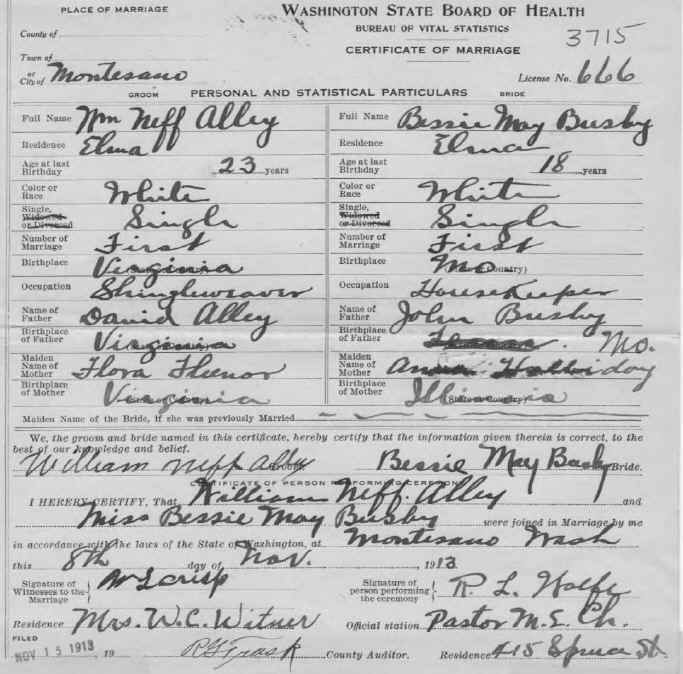 PLACE OF MARRIAGE
WASHINGTON STATE BOARD OF HEALTH
County of
BUREAU OF VITAL STATISTICS
3715
Town of
CERTIFICATE OF MARRIAGE
or
City of Montesano
License No. 666
GROOM PERSONAL AND STATISTICAL PARTICULARS BRIDE
Full Name Wm Neff Alley Full Name Bessie May Busby
Residence Elma Residence Elma
Age at last Birthday 23 years Age at last Birthday 18 years
Color or Race White Color or Race White
Single, Widowed or Divorced Single Single, Widowed or Divorced Single
Number of Marriage First Number of Marriage First
Birthplace Virginia Birthplace Mo Country)
Occupation Shingleweaver Occupation Housekeeper
Name of Father David Alley Name of Father John Busby
Birthplace of Father Virginia Birthplace of Father Mo.
Maiden Name of Mother Flora Maiden Name of Mother Anna Halliday
Birthplace of Mother Virginia Birthplace of Mother Illinois
Maiden Name of the Bride, if she was previously Married
We, the groom and bride named in this certificate, hereby certify that the information given therein is correct, to the
best of our knowledge and belief.
William Neff Alley Bessie May Busby Bride.
CERTIFICATE OF PERSON PERFORMING CEREMONY
I HEREBY CERTIFY, That William Neff. Alley and
Miss Bessie May Busby were joined in Marriage by me
in accordance with the laws of the State of Washington, at Montesano Wash
this 8th day of Nov. 1913
Signature of Witnesses to the Marriage W L Crisp Signature of person performing the ceremony R. L. Wolfe
Residence Mrs. W. C. Witner Official station Pastor M. E. Ch.
FILED
NOV 15 1913, 19 County Auditor. Residence 415 Spruce St.